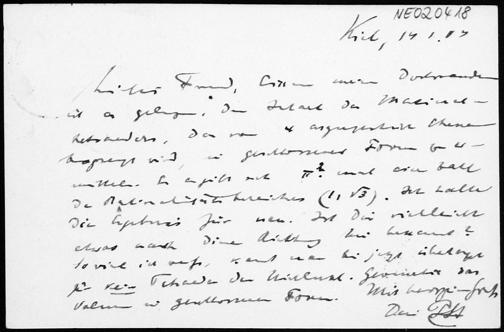 NE020418
Kiel, 14.1.07
Lieber Freund, Einem meiner Doktoranden
ist es gelungen, den Inhalt des Maximal-
tetraeders, das von 4 Ebenen
wird, in geschlossener Form zu er-
mitteln. Es ergibt sich π² mal eine Zahl
des Rationalitätsbereiches (1, √3). Ich halte
die Ergebnis für neu. Ist Dir vielleicht
etwas nach dieser Richtung hin bekannt?
Soviel ich weiss, kennt man bis jetzt überhaupt
für kein Tetraeder der Nichteukl. Geometrie das
Volumen in geschlossener Form.
Mit herzlichem Gruß
Dein